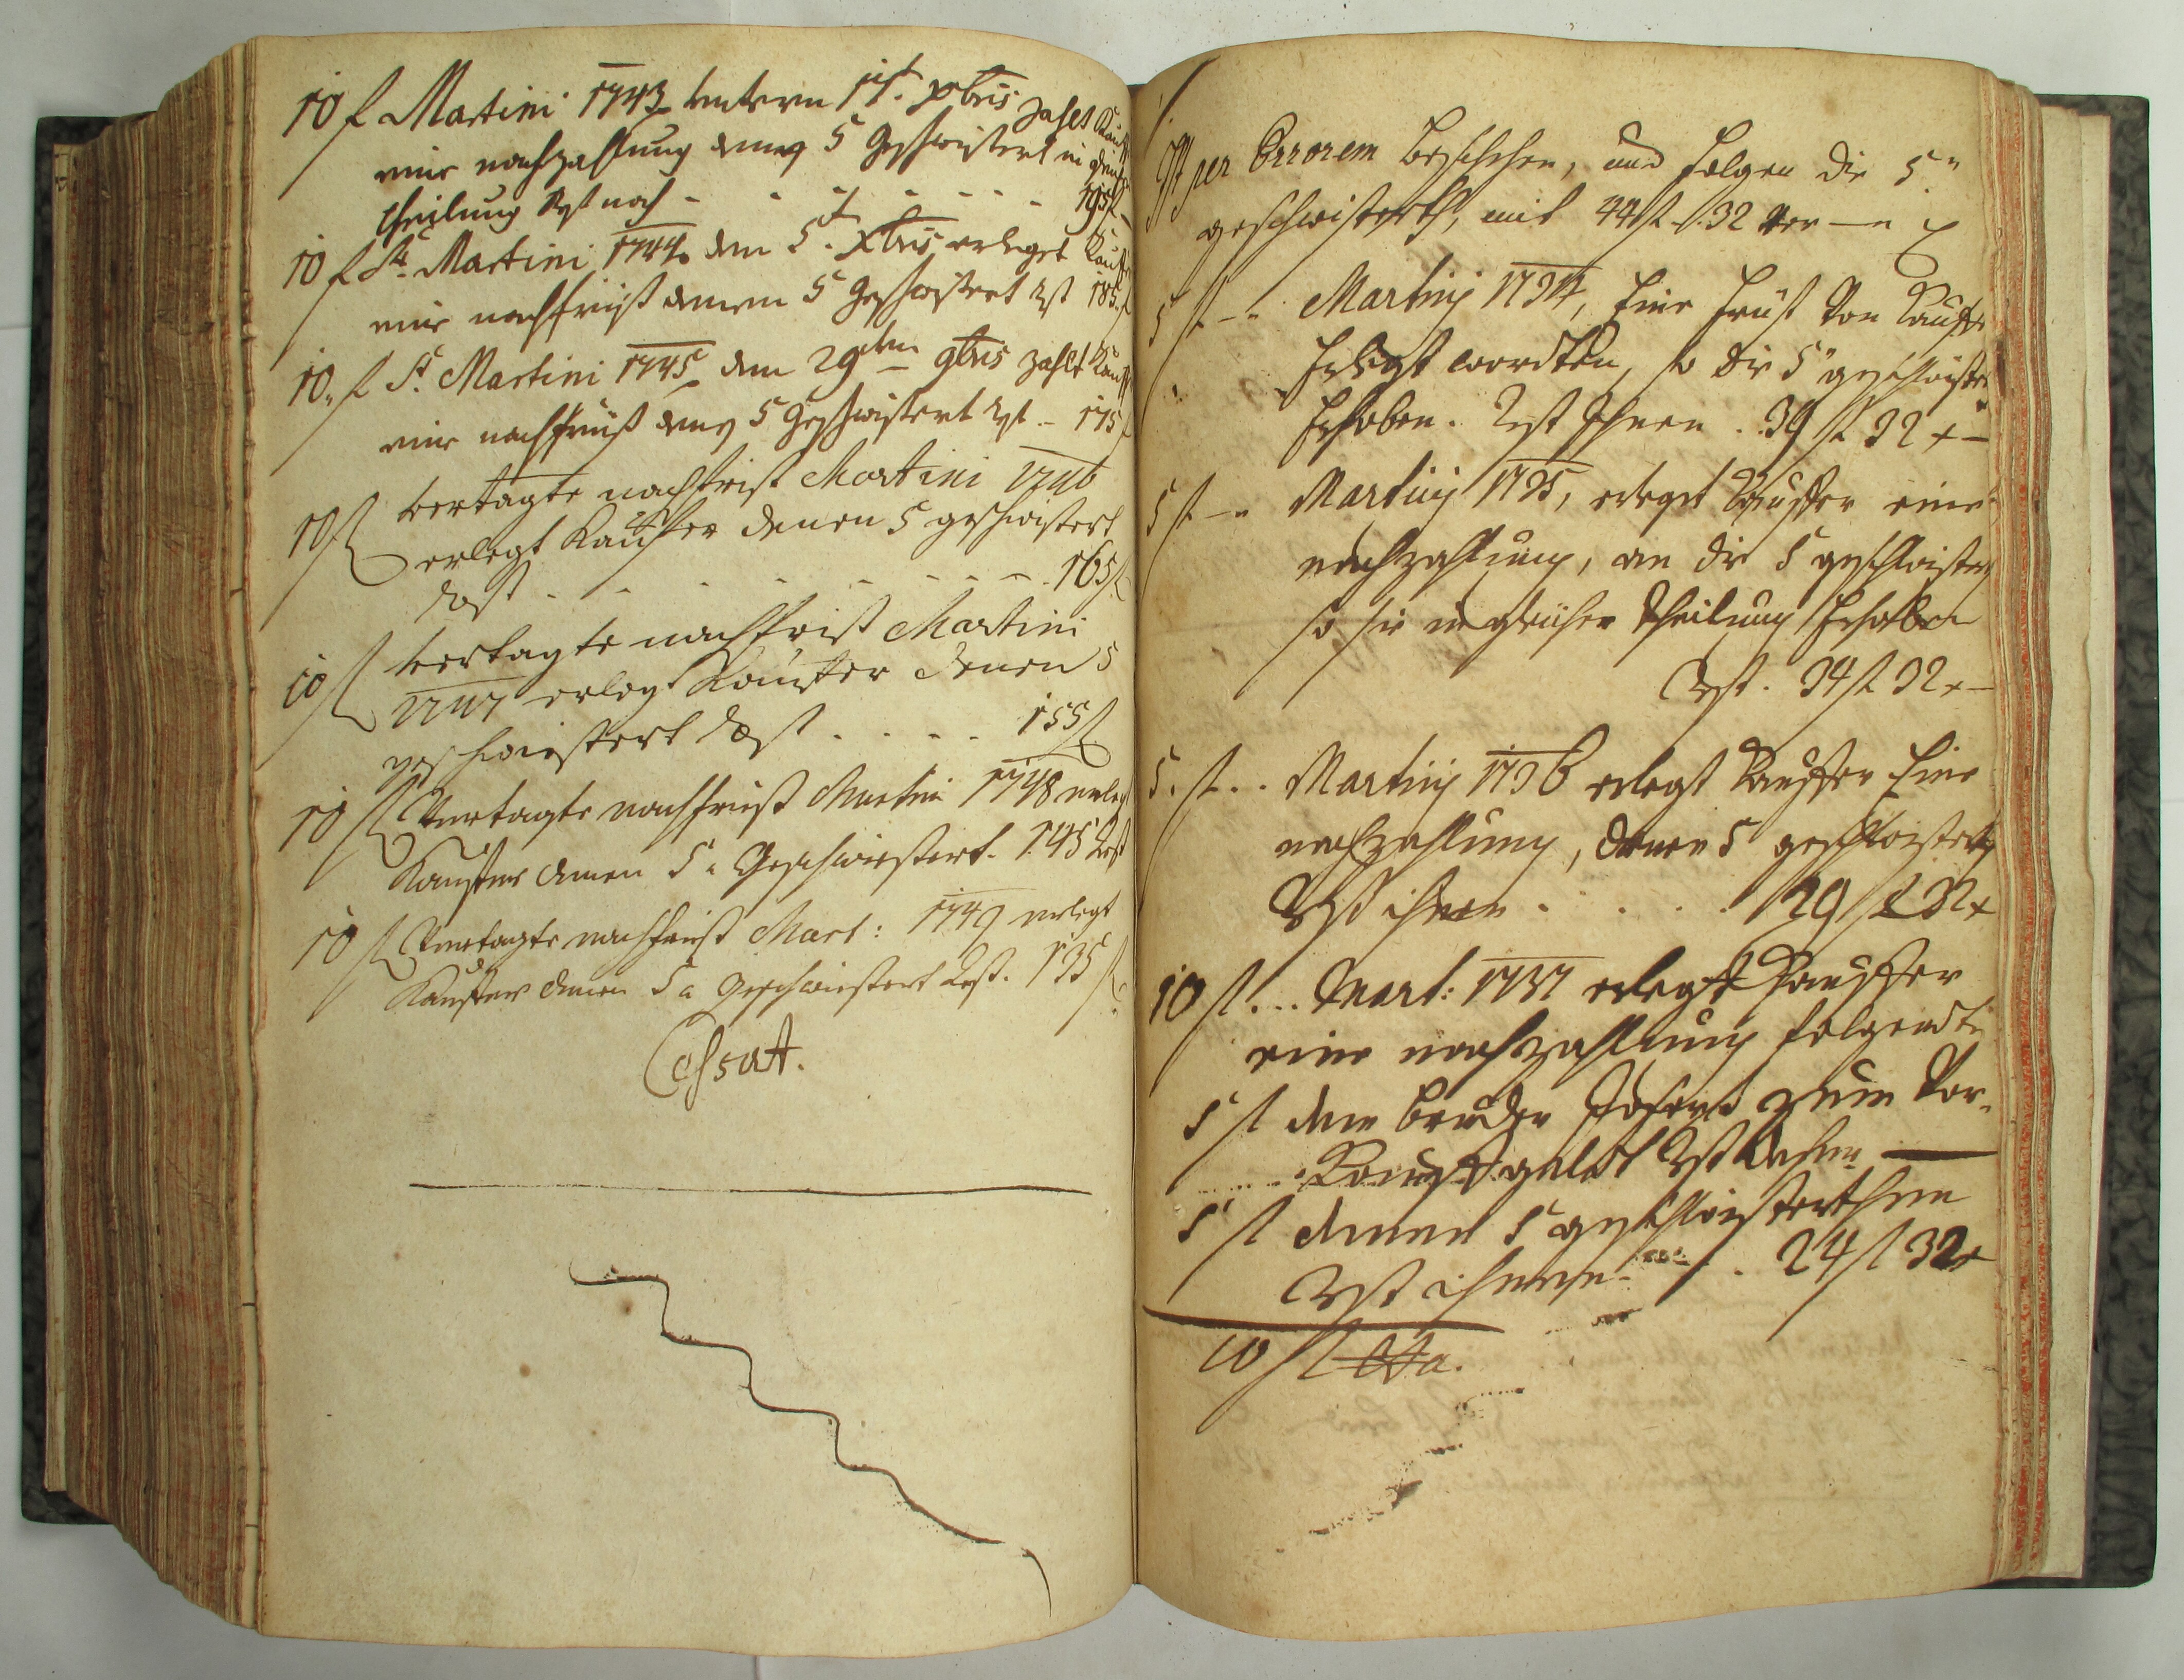 10 f Martini 1743 untern 17t Xbris zahlt Kauff
eine nachzahlung denen 5 Geschwistert in gleicher
theilung Rest noch - - - - - - 195 f
10 f St. Martini 1744. den 5t. Xbris erleget Kauffer
eine nachfrist denen 5 Geschwistert Rst 185 f
10. f St. Martini 1745 den 29ten 9bris zahlt Kauff
eine nachfrist denen 5 Geschwistert Rst - 175 f
10 f vertagte nachfrist Martini 1746
erlegt Kauffer denen 5 geschwistert
Rest - - - - - - - - 165 f
10 f vertagte nachfrist Martini
1747 erlegt Kauffer denen 5
geschwistert Rest . . . . 155 f
10 f Vertagte nachfrist Martini 1748 erlegt
Kauffer denen 5 Geschwistert. 145 Rest
10 f Vertagte nachfrist Mart: 1749 erlegt
Kauffer denen 5 Geschwistert Rest. 135 f
Cessat.
Ist per Errorem beschehen, und folgen die 5
geschwisterth, mit 44 f 32
5 f - Martiny 1734, Eine frist Von Kauffer
Erlegt wordten, so die 5 geschwistert
Erhoben. Rest Ihnen . 39 f 32 x -
5 f - Martiny 1735, erlegt Kauffer eine
nachzahlung, an die 5 geschwistert
so sie in gleicher theilung Erhoben
Rst. 34 f 32 x -
5. f . . Martiny 1736 erlegt Kauffer Eine
nachzahlung, denen 5 geschwistert
Rest ihnen . . . . . 29 f 32 x
10 f . . . Mart: 1737 erlegt Kauffer
eine nachzahlung folgendt
5 f dem bruder zum Vor-
Kauffgeldt Rst
5 f denen 5 geschwisterthen
Rst ihnen . . . 24 f 32 x
10 f